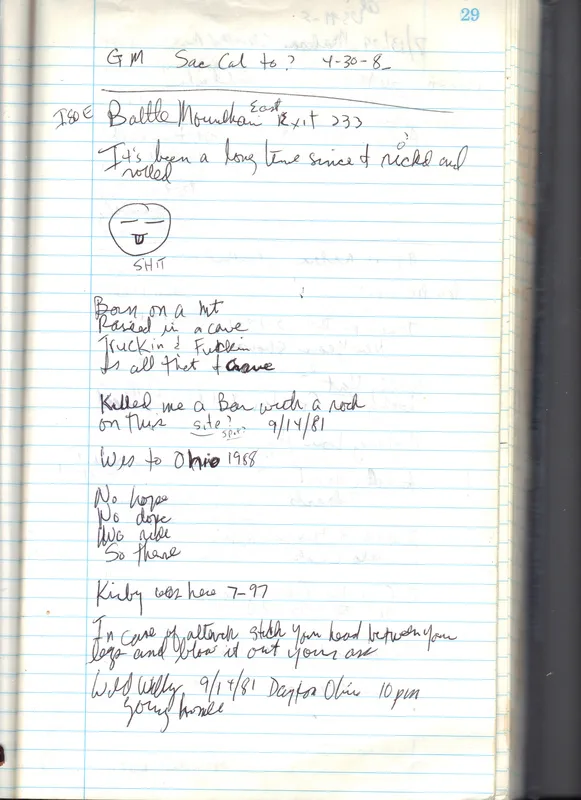 29
GM Sac Cal to? 4-30-8_
I80E Battle Mountain East Exit 233
It's been a long time since I rick'd and
rolled
SHIT
Born on a mt
Raised in a cave
Truckin & Fuckin
Is all that I crave
Killed me a Bear with a rock
on this site? spot? 9/14/81
Wis to Ohio 1988
No hope
No dope
No ride
So there
Kirby was here 7-97
In case of attack stick your head between your
legs and blow it out your ass
Wild Willy 9/14/81 Dayton Ohio 10 pm
going home